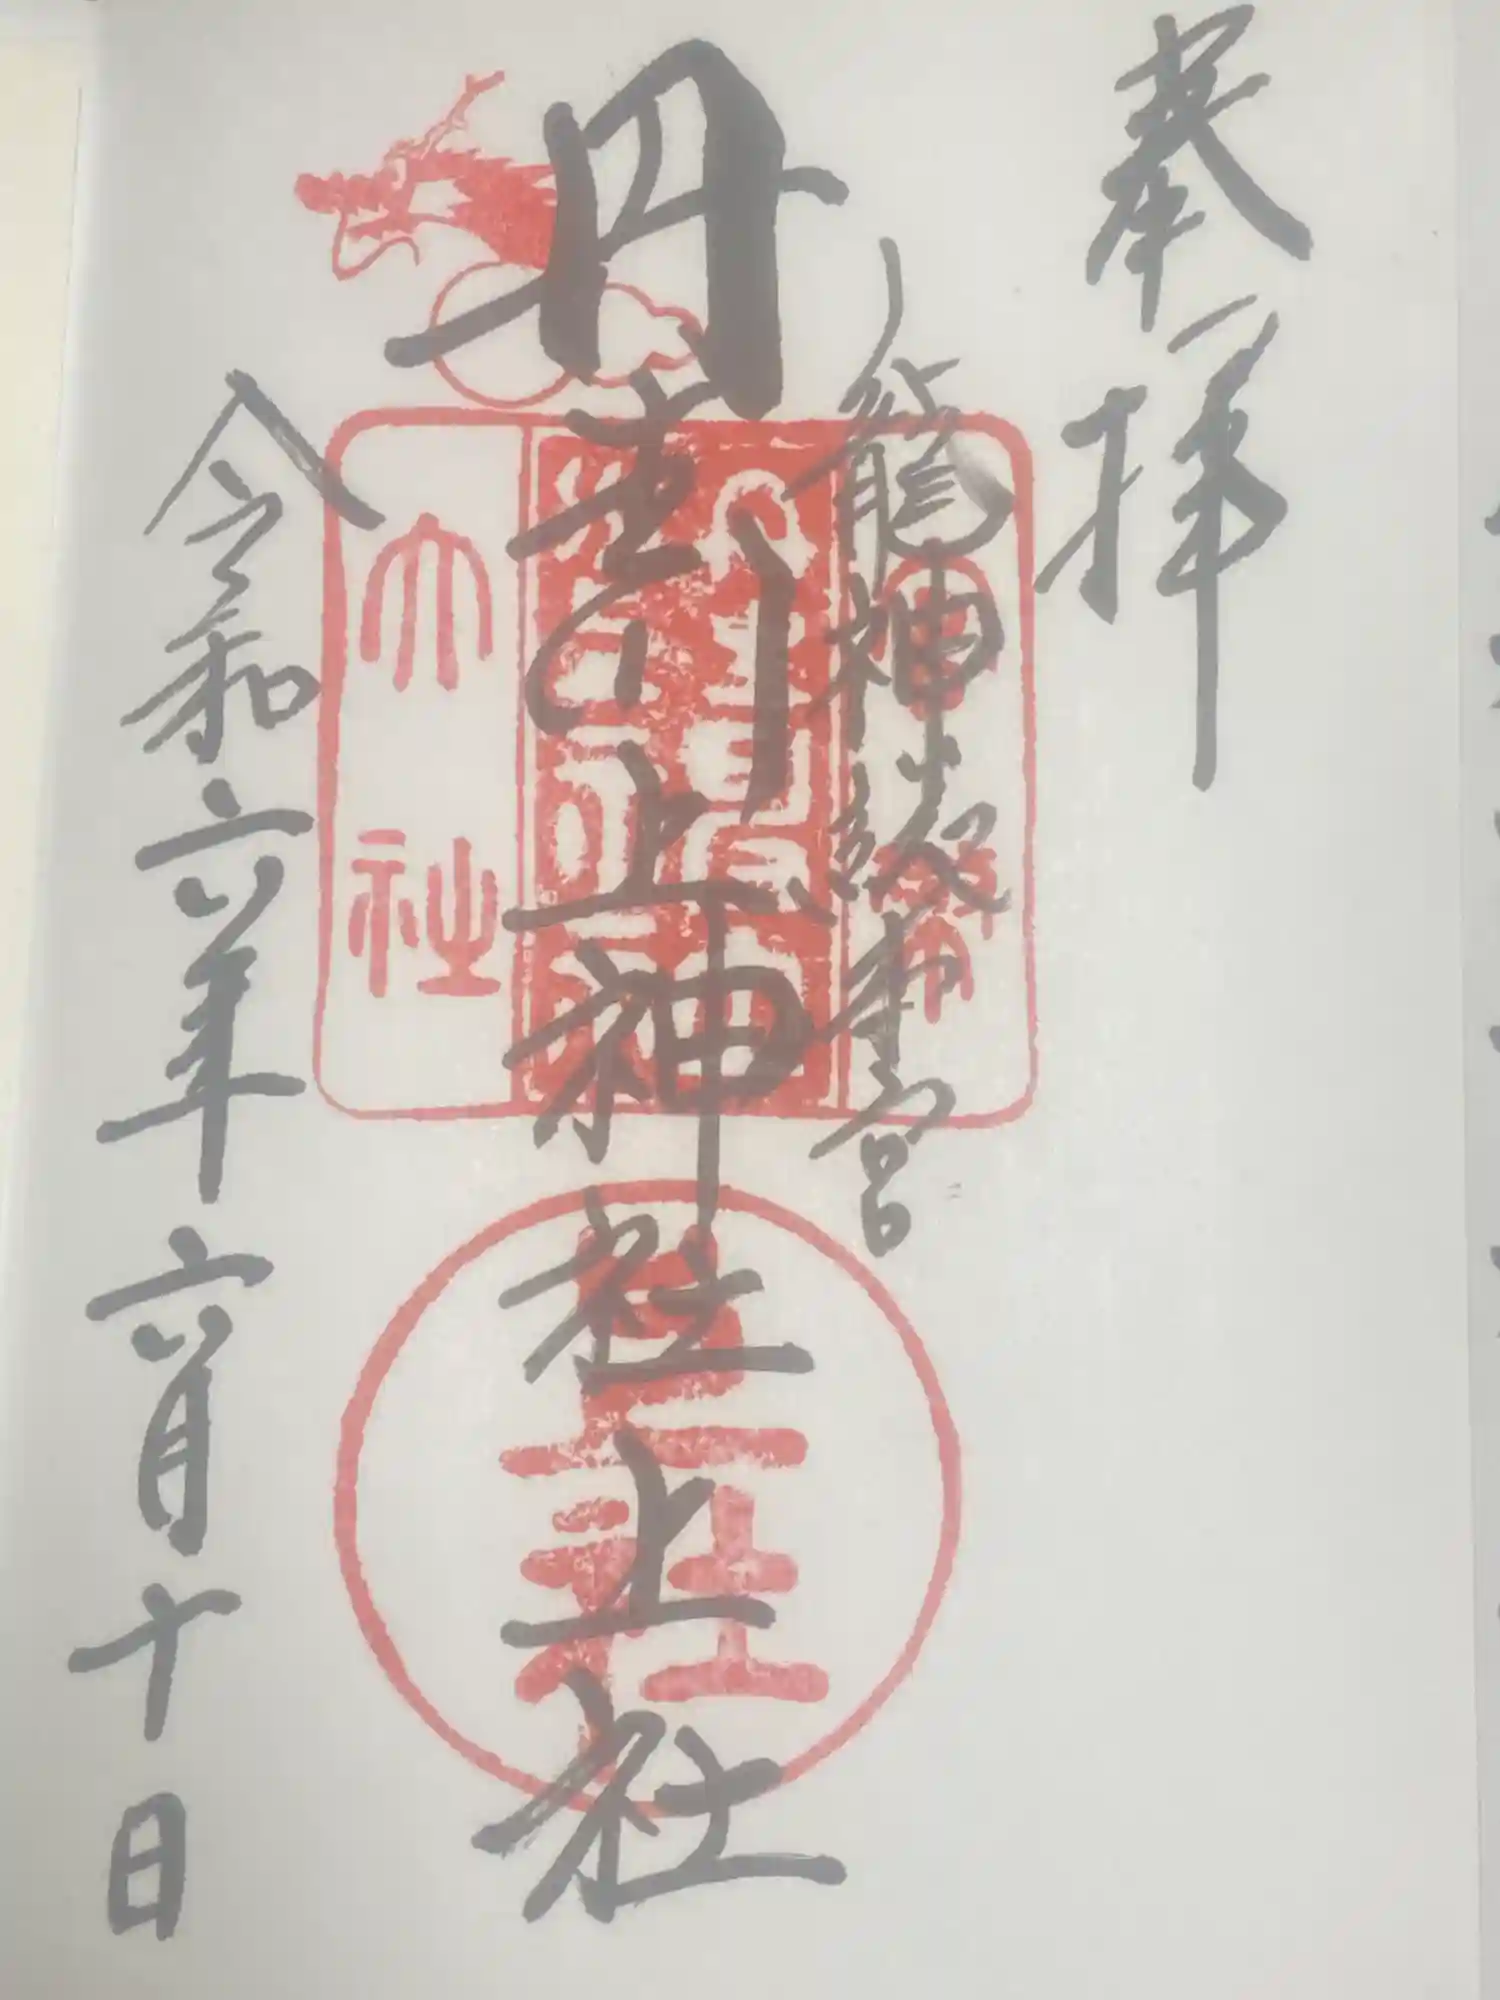 奉拝
龍神総本宮
丹生川上神社上社
令和六年六月十日
大社
上社